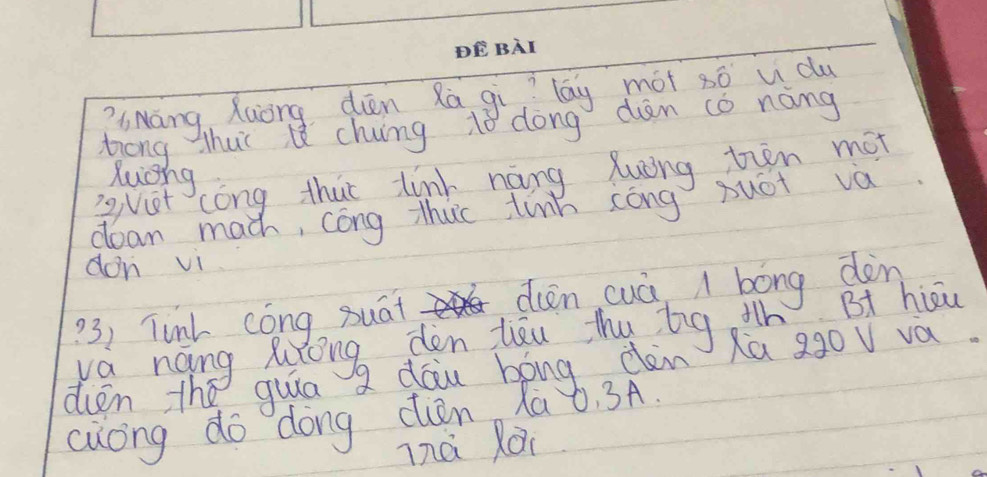 ĐỀ BÀI
?1, Năng lượng điện là gì? lấy một số ví dụ
trong thực tế chứng tỏ dòng điện có năng
lượng.
?2, Viết công thức tính năng lượng trên một
đoạn mạch, công thức tính công suốt và
đơn vị.
?3) Tính công suất điện của 1 bóng đèn
và năng lượng đèn tiêu thụ trg 1h Bt hiệu
điện thế giữa 2 đầu bóng đèn là 220 V và
cường độ dòng điện là 0.3A.
Trả lời